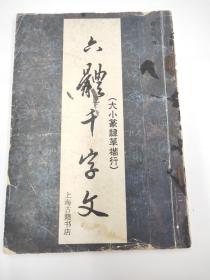 六體千字文
(大小篆隸草楷行)
上海古籍书店